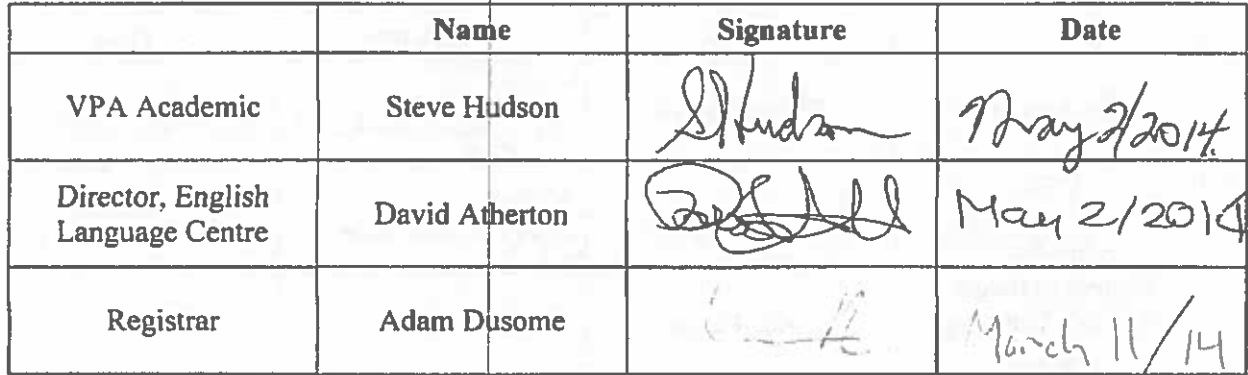 Name Signature Date
VPA Academic Steve Hudson SHudson May 2/2014.
Director, English
Language Centre David Atherton May 2/2014
Registrar Adam Dusome March 11/14